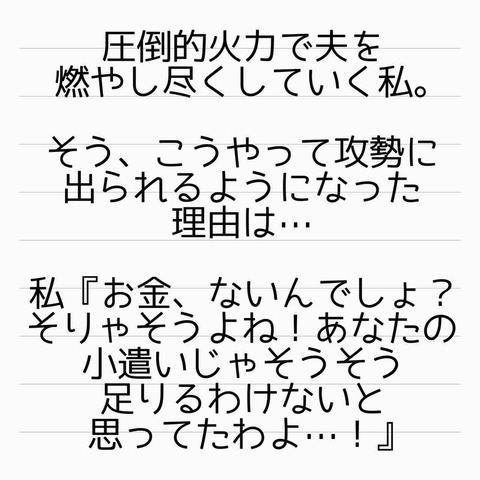 圧倒的火力で夫を
燃やし尽くしていく私。
そう、こうやって攻勢に
出られるようになった
理由は…
私『お金、ないんでしょ？
そりゃそうよね！あなたの
小遣いじゃそうそう
足りるわけないと
思ってたわよ…！』